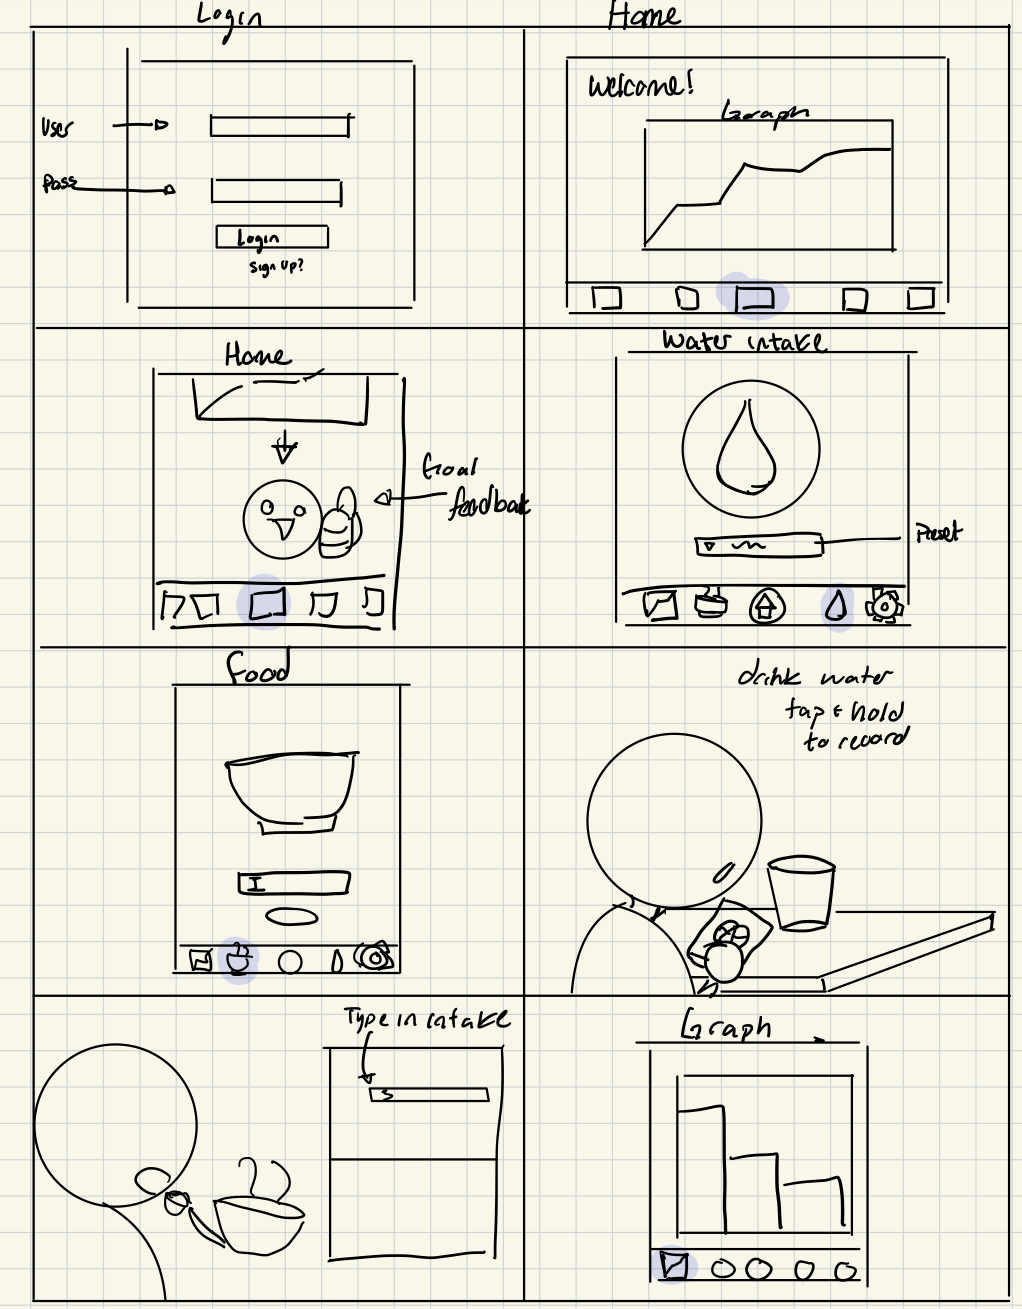 Login
Home
User
Pass
Login
Sign Up?
Welcome!
Graph
Home
Goal
feedback
Water intake
Preset
Food
drink water
tap & hold
to record
Type in intake
Graph